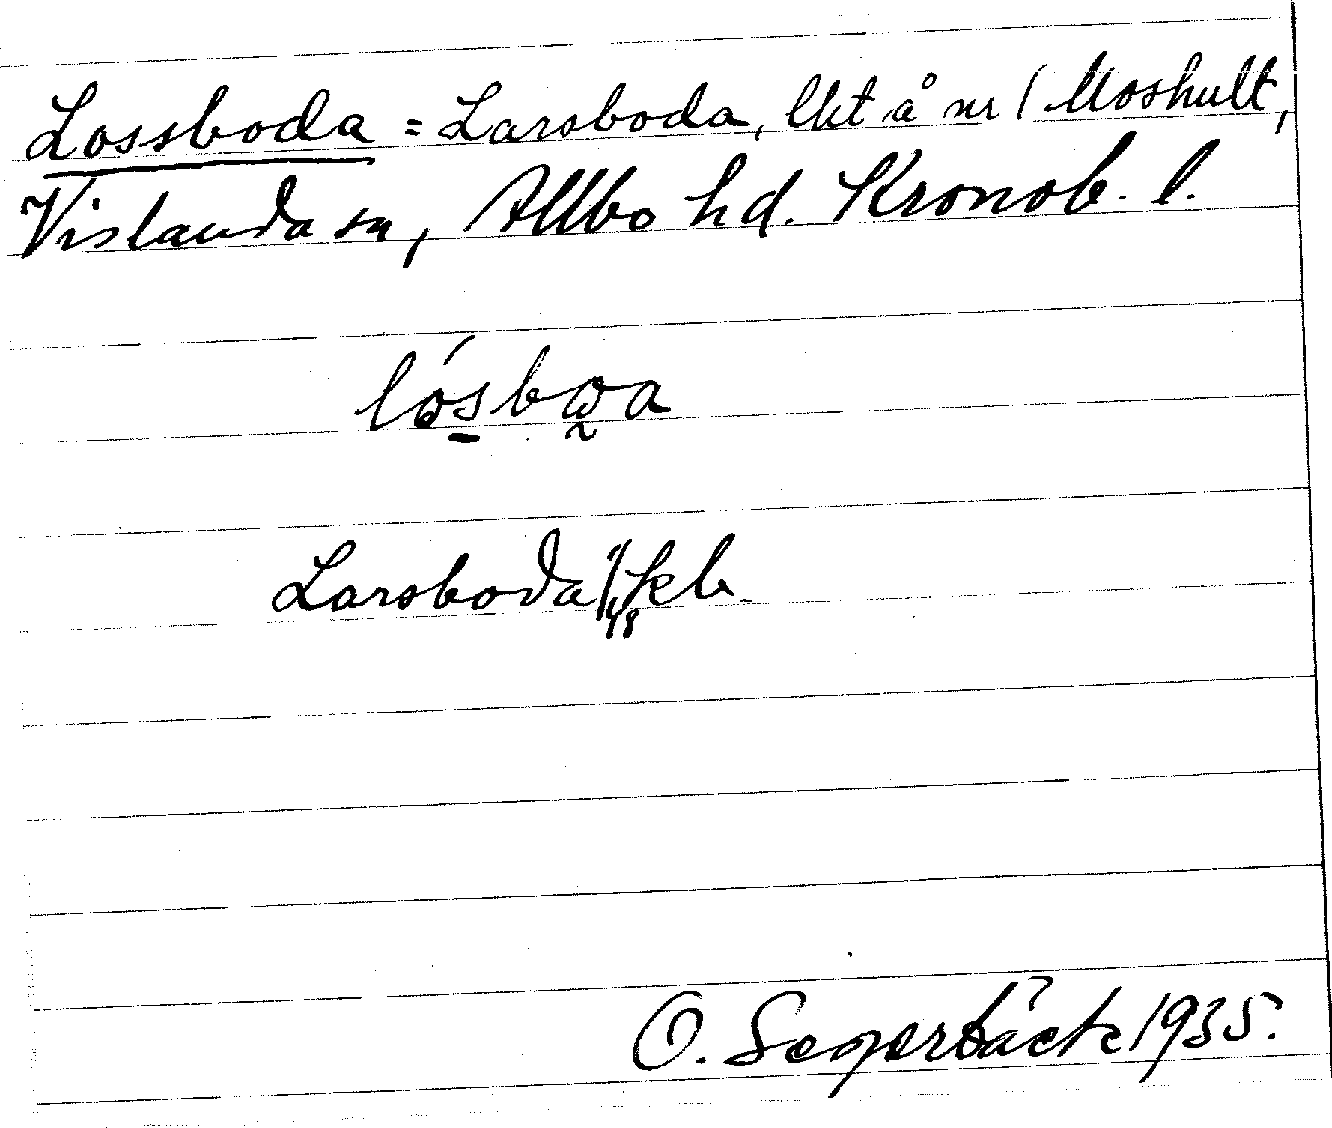 Lossboda = Larsboda, lht å nr 1 Moshult,
Vislanda sn, Allbo hd. Kronob. l.
lósbωa
Larsboda 1/48 kb
O. Segerbäck 1935.